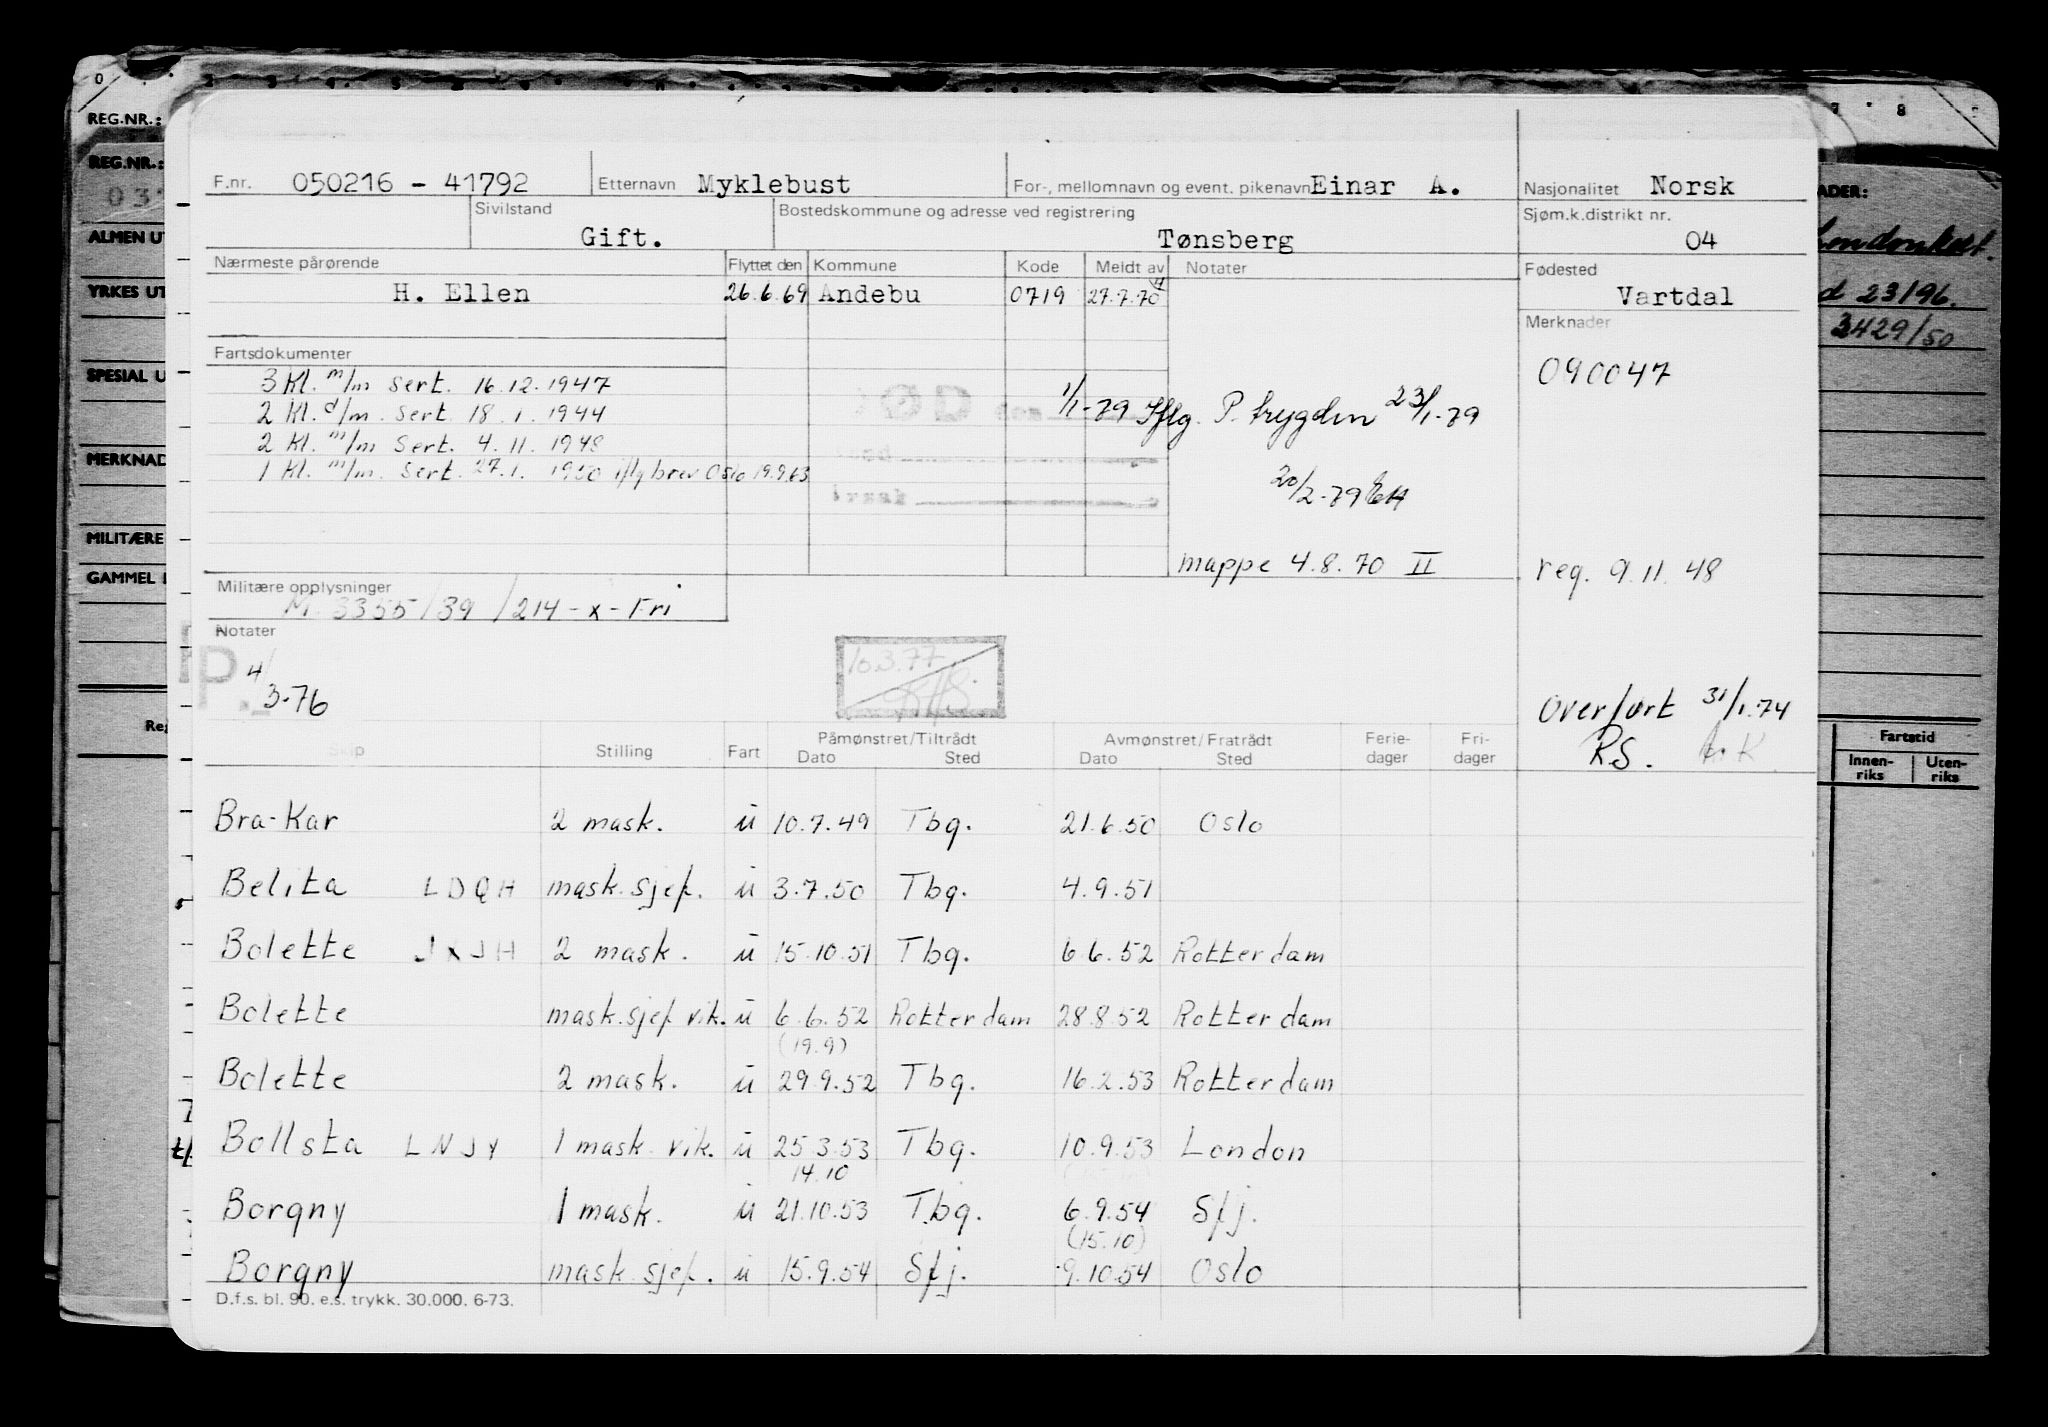 REG.NR.:
REG.NR.:
ALMEN UT
YRKES UT
SPESIAL U
MERKNAD
MILITÆRE
GAMMEL
F.nr. 050216 - 41792 Etternavn Myklebust For-, mellomnavn og event. pikenavn Einar A. Nasjonalitet Norsk
Sivilstand Gift. Bostedskommune og adresse ved registrering Tønsberg Sjøm.k.distrikt nr. 04
Nærmeste pårørende Flyttet den Kommune Kode Meldt av Notater Fødested
H. Ellen 26.6.69 Andebu 0719 27.7.70 Vartdal
Merknader
Fartsdokumenter
090047
3 Kl. m/m sert. 16.12.1947
2 Kl. d/m. sert. 18.1.1944
1/1-79 Iflg. P. trygden 23/1-79
2 Kl. m/m sert. 4.11.1948
1 Kl. m/m. sert. 27.1. 1950 iflg brev Oslo 19.9.63
DØD
årsak
20/2-79
mappe 4.8.70 II
reg. 9.11.48
Militære opplysninger
M. 3355/39/214-x-Fri
Notater
P.
4/3-76
10.3.77
Overført 31/1.74
RS.
Skip Stilling Fart Påmønstret/Tiltrådt Avmønstret/Fratrådt Ferie- Fri-
Dato Sted Dato Sted dager dager
Bra-Kar 2 mask. u 10.7.49 Tbg. 21.6.50 Oslo
Belita LDQH mask.sjef. u 3.7.50 Tbg. 4.9.51
Bolette JXJH 2 mask. u 15.10.51 Tbg. 6.6.52 Rotterdam
Bolette mask.sjef vik. u 6.6.52 Rotterdam 28.8.52 Rotterdam
(19.9)
Bolette 2 mask. u 29.9.52 Tbg. 16.2.53 Rotterdam
Bollsta LNJY 1 mask. vik. u 25.3.53 Tbg. 10.9.53 London
14.10
Borgny 1 mask. u 21.10.53 Tbg. 6.9.54 Sfj.
(15.10)
Borgny mask.sjef. u 15.9.54 Sfj. 9.10.54 Oslo
D.f.s. bl. 90. e.s. trykk. 30.000. 6-73.
ADER:
23/96.
3429/50
Fartstid
Innen- Uten-
riks riks